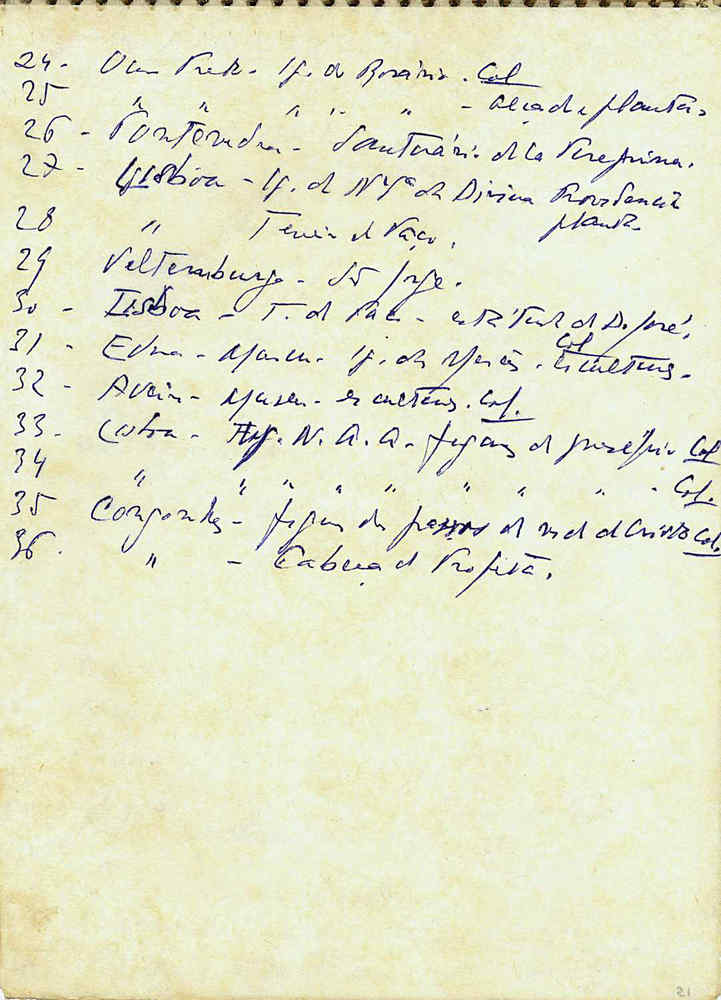 24 - Ouro Preto - Ig. do Rosário. Col
25 " " " " " - alçado e planta.
26 - Pontevedra - Santuário de la Peregrina.
27 - Lisboa - Ig. de N. Sª da Divina Providência
28 " Terreiro do Paço. planta
29 Veltemburgo - São Jorge.
30 - Lisboa - T. do Paço - estátua de D. José.
31 - Évora - Museu - Ig. das Mercês. Esculturas. Col
32 - Aveiro - Museu - esculturas. Col.
33 - Lisboa - M. N. A. A. - figuras de presépio Col
34 " " " " " " " " - Col.
35 Congonhas - figuras dos passos da vida de Cristo Col.
36. " - Cabeça de Profeta.
21